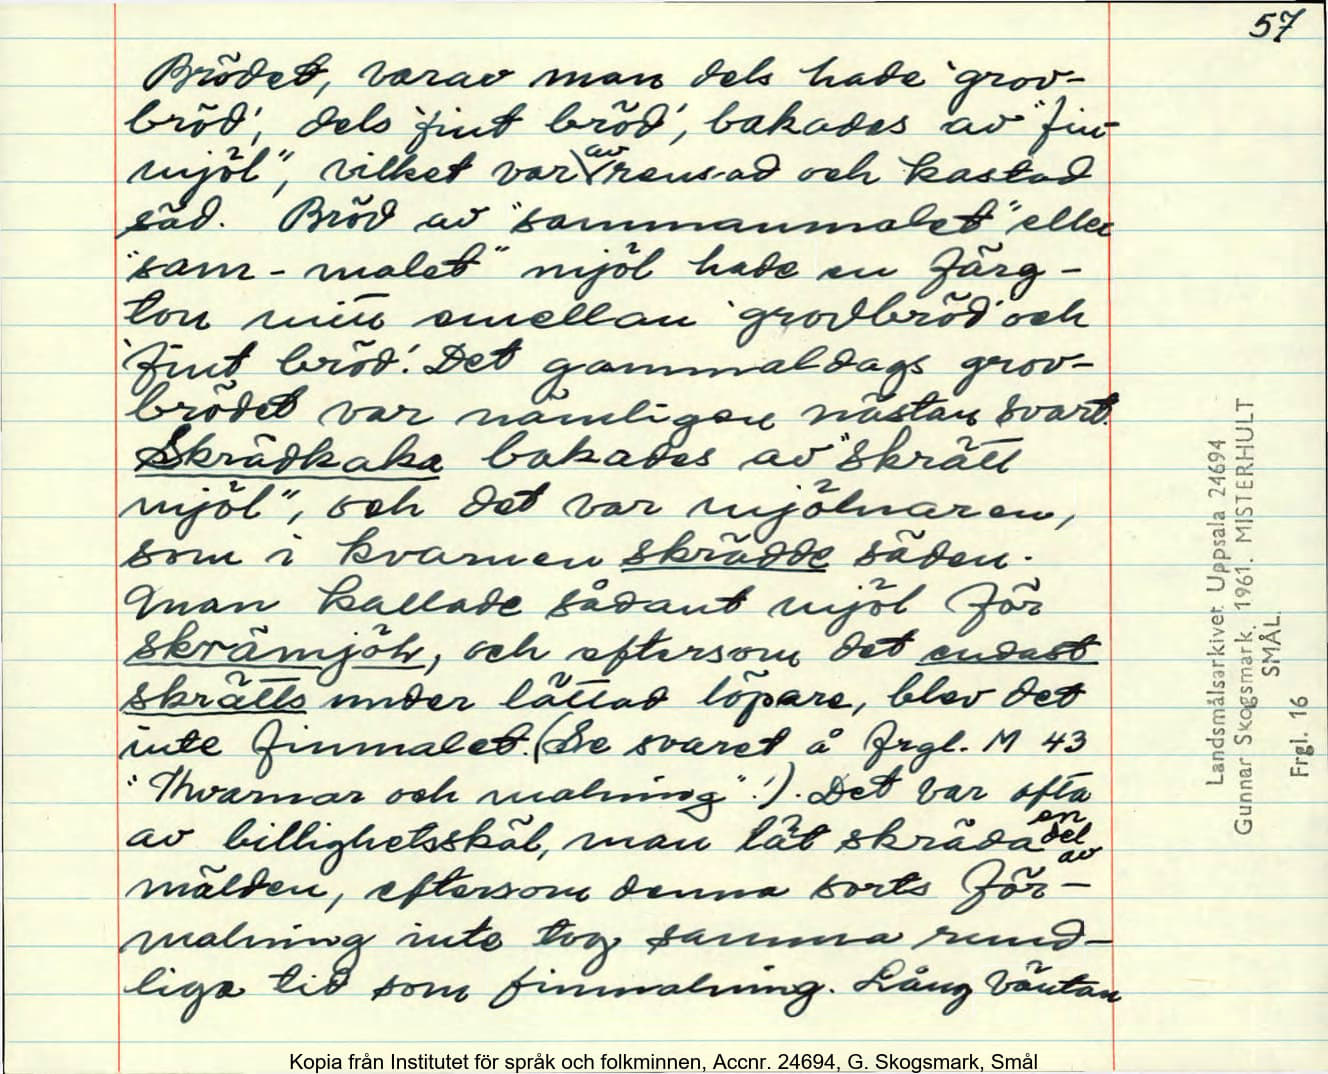 57
Brödet, varav man dels hade 'grov-
bröd', dels 'fint bröd', bakades av "fin
mjöl", vilket var av rensad och kastad
säd. Bröd av "sammanmalet" eller
"sam-malet" mjöl hade en färg-
ton mitt emellan 'grovbröd' och
'fint bröd'. Det gammaldags grov-
brödet var nämligen nästan svart.
Skrädkaka bakades av "skrätt
mjöl", och det var mjölnaren,
som i kvarnen skrädde säden.
Man kallade sådant mjöl för
skrämjöl, och eftersom det endast
skrätts under lättad löpare, blev det
inte finmalet. (Se svaret å frgl. M 43
"Kvarnar och malning"!). Det var ofta
av billighetsskäl, man lät skräda en del av
mälden, eftersom denna sorts för-
malning inte tog samma rund-
liga tid som finmalning. Lång väntan
Landsmålsarkivet Uppsala 24694
Gunnar Skogsmark. 1961. MISTERHULT
SMÅL.
Frgl. 16
Kopia från Institutet för språk och folkminnen, Accnr. 24694, G. Skogsmark, Smål